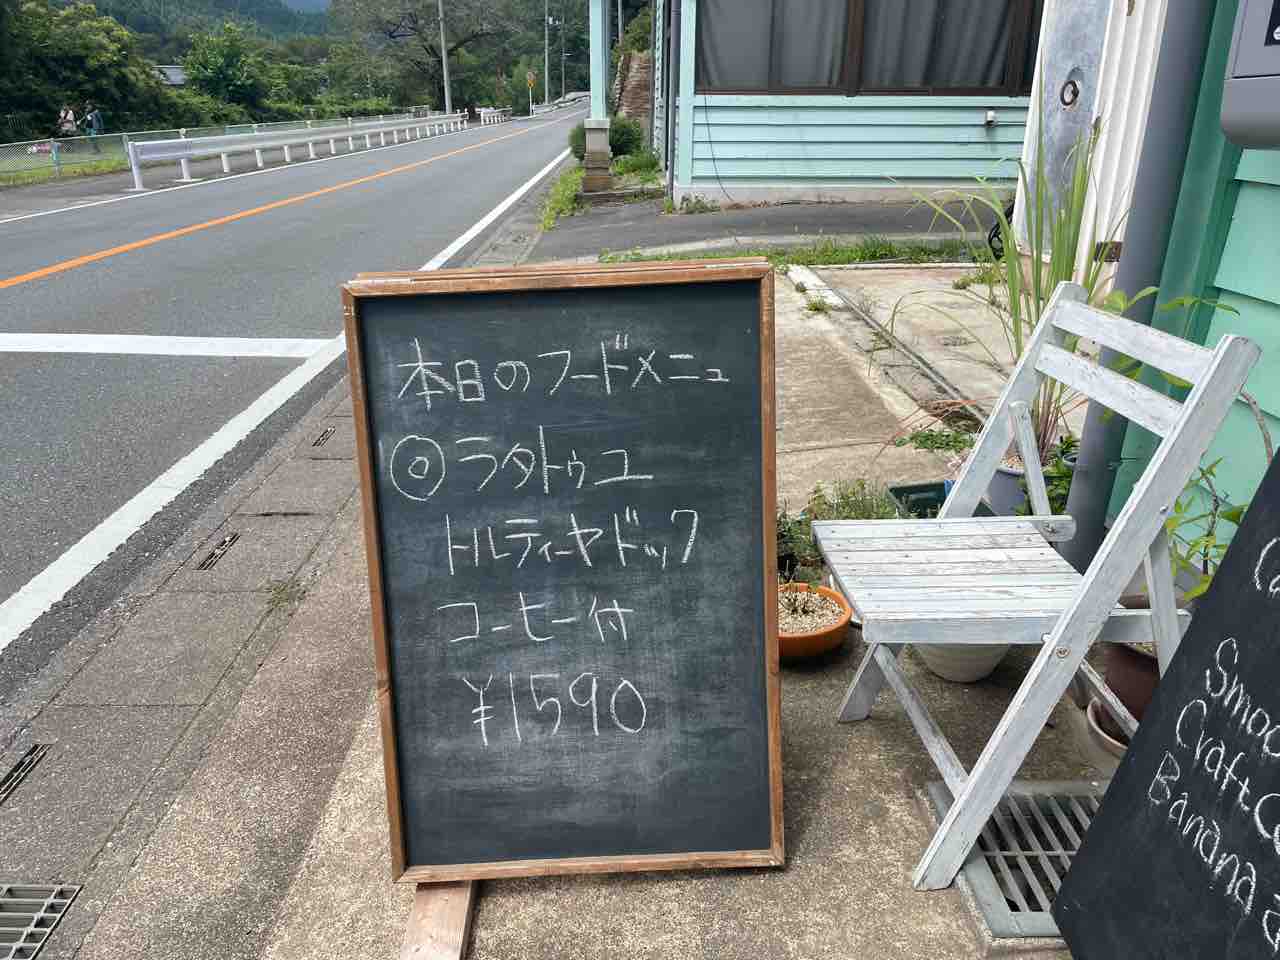 本日のフードメニュ
◎ラタトゥユ
トルティーヤドック
コーヒー付
¥1590
Craft
Banana